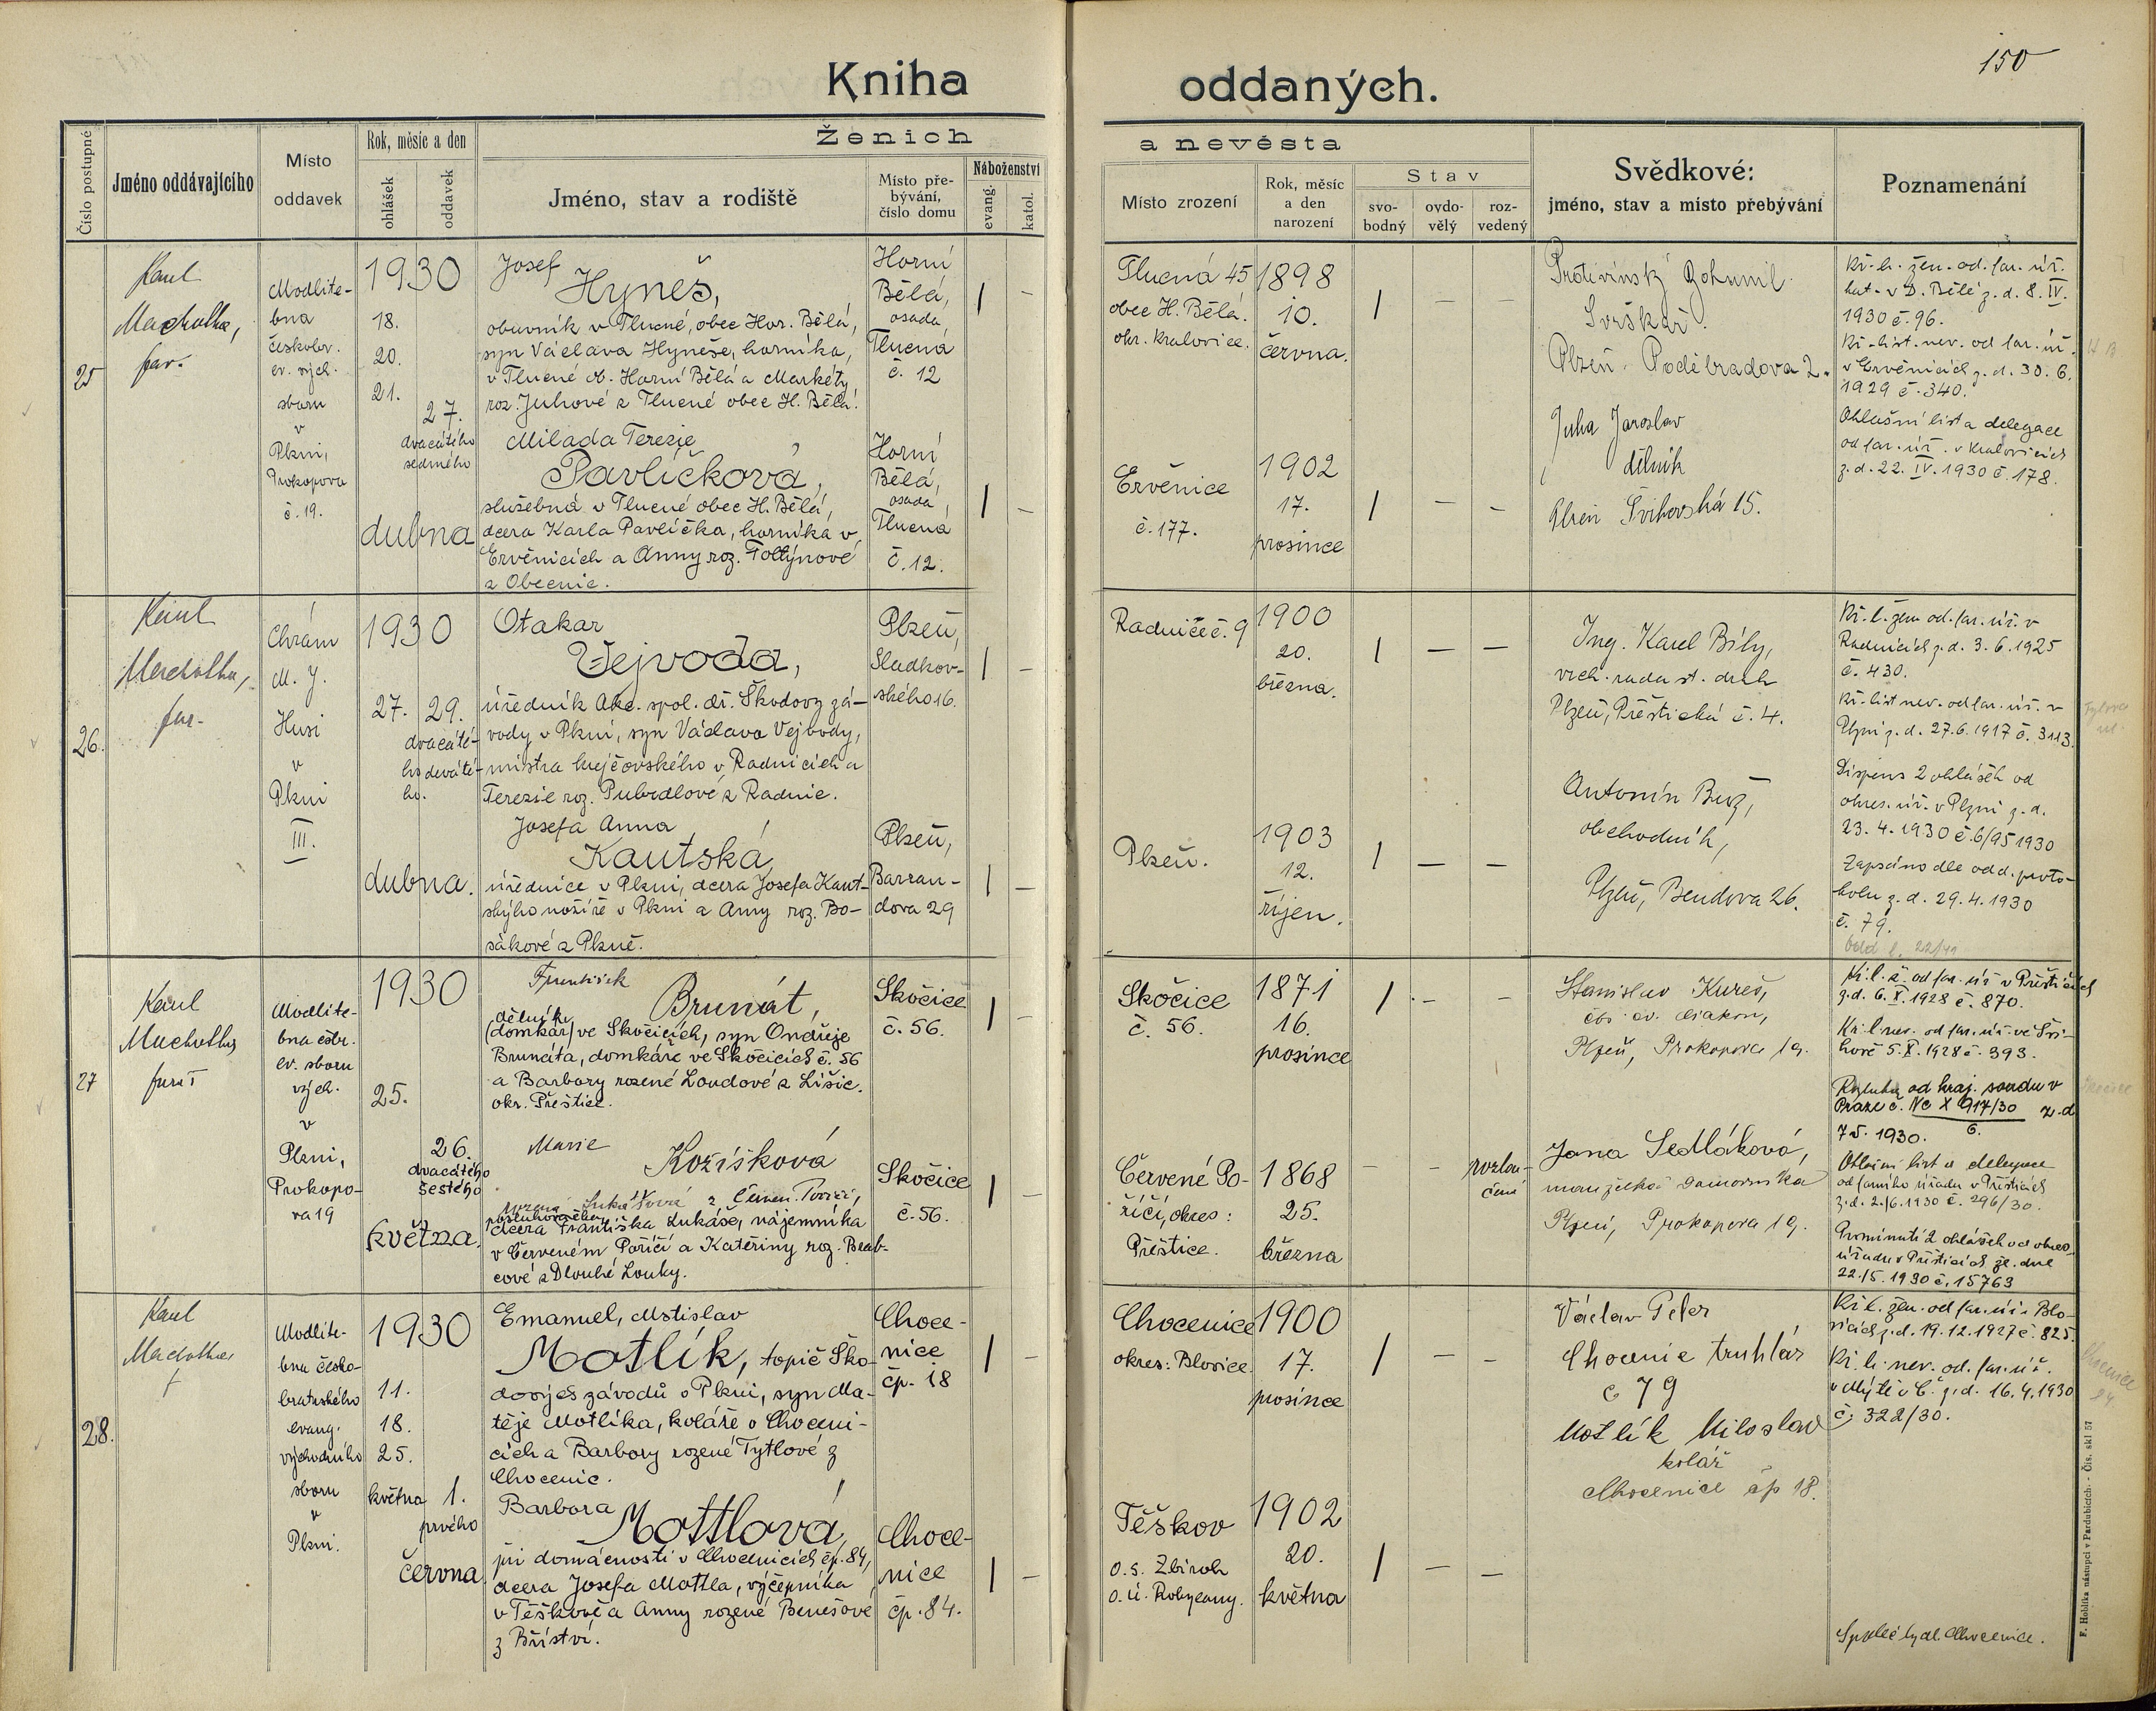 150
Kniha oddaných.
Číslo postupné
Jméno oddávajícího
Místo
oddavek
Rok, měsíc a den
ohlášek
oddavek
Ženich
Jméno, stav a rodiště
Místo pře-
bývání,
číslo domu
Náboženství
evang.
katol.
a nevěsta
Místo zrození
Rok, měsíc
a den
narození
Stav
svo-
bodný
ovdo-
vělý
roz-
vedený
Svědkové:
jméno, stav a místo přebývání
Poznamenání
25
Karel
Machotka,
far.
Modlite-
bna
českobr.
ev. vých.
sboru
v
Plzni,
Prokopova
č. 19.
1930
18.
20.
21.
27.
dvacátého
sedmého
dubna
Josef
Hyneš,
obuvník v Tlucné, obec Hor. Bělá,
syn Václava Hyneše, horníka,
v Tlucné ob. Horní Bělá a Markéty,
roz. Juhové z Tlucné obec H. Bělá.
Horní
Bělá,
osada
Tlucná
č. 12
Milada Terezie
Pavlíčková,
služebná v Tlucné obec H. Bělá,
dcera Karla Pavlíčka, horníka v
Ervěnicích a Anny roz. Foltýnové
z Obecnic.
Horní
Bělá,
osada
Tlucná
č. 12.
Tlucná 45
obec H. Bělá.
okr. Kralovice.
1898
10.
června.
Ervěnice
č. 177.
1902
17.
prosince
Protivínský Bohumil
Svrškař.
Plzeň. Poděbradova 2.
Juha Jaroslav
dělník
Plzeň Švihovská 15.
Kř. l. žen. od. far. úř.
kat. v D. Bělé z. d. 8. IV.
1930 č. 96.
Kř. list. nev. od far. úř.
v Ervěnicích z. d. 30. 6.
1929 č. 340.
Ohlašní list a delegace
od far. úř. v Kralovicích
z. d. 22. IV. 1930 č. 178.
26.
Karel
Machotka,
far.
Chrám
M. J.
Husi
v
Plzni
III.
1930
27. 29.
dvacáté-
ho deváté-
ho.
dubna.
Otakar
Vejvoda,
úředník Akc. spol. dř. Škodovy zá-
vody v Plzni, syn Václava Vejvody,
mistra krejčovského v Radnicích a
Terezie roz. Pubrdlové z Radnic.
Plzeň,
Sladkov-
ského 16.
Josefa Anna
Kautská,
úřednice v Plzni, dcera Josefa Kaut-
ského nožíře v Plzni a Anny roz. Bo-
sákové z Plzně.
Plzeň,
Barran-
dova 29
Radnice č. 9
1900
20.
března.
Plzeň.
1903
12.
říjen.
Ing. Karel Bílý,
vrch. rada st. drah
Plzeň, Přeštická č. 4.
Antonín Buž,
obchodník,
Plzeň, Bendova 26.
Kř. l. žen od. far. úř. v
Radnicích z. d. 3. 6. 1925
č. 430.
Kř. list nev. od far. úř. v
Plzni z. d. 27. 6. 1917 č. 3113.
Dispens 2 ohlášek od
okres. úř. v Plzni z. d.
23. 4. 1930 č. 6/95 1930
Zapsáno dle odd. proto-
kolu z. d. 29. 4. 1930
č. 79.
27
Karel
Machotka
farář
Modlite-
bna čsbr.
ev. sboru
vých.
v
Plzni,
Prokopo-
va 19
1930
25.
26.
dvacátého
šestého
května.
František
Brunát,
dělník
(domkář) ve Skočicích, syn Ondřeje
Brunáta, domkáře ve Skočicích č. 56
a Barbory rozené Loudové z Lišic.
okr. Přeštice.
Skočice
č. 56.
Marie
Kožíšková
rozená Lukášová z Červen. Poříčí,
posluhovačka
dcera Františka Lukáše, nájemníka
v Červeném Poříčí a Kateřiny roz. Brab-
cové z Dlouhé Louky.
Skočice
č. 56.
Skočice
č. 56.
1871
16.
prosince
Červené Po-
říčí, okres:
Přeštice.
1868
25.
března
rozlou-
čená
Stanislav Kureš,
čbr. ev. diakon,
Plzeň, Prokopova 19.
Jana Sedláková,
manželka domovníka
Plzeň, Prokopova 19.
Kř. l. ž. od far. úř. v Přešticích
z. d. 6. X. 1928 č. 870.
Kř. l. nev. od far. úř. ve Švi-
hově 5. X. 1928 č. 393.
Rozluka od kraj. soudu v
Praze č. Nc X 917/30 z. d.
6.
7 5. 1930.
Ohlašní list a delegace
od farního úřadu v Přešticích
z. d. 2./6. 1930 č. 296/30.
Prominutí 2 ohlášek od okres.
úřadu v Přešticích ze dne
22./5. 1930 č. 15763
28.
Karel
Machotka
f
Modlite-
bna česko-
bratrského
evang.
východního
sboru
v
Plzni.
1930
11.
18.
25.
května
1.
prvého
června
Emanuel, Mstislav
Motlík, topič Ško-
dových závodů v Plzni, syn Ma-
těje Motlíka, koláře v Choceni-
cích a Barbory rozené Tytlové z
Chocenic.
Choce-
nice
čp. 18
Barbora
Mottlová,
při domácnosti v Chocenicích čp. 84,
dcera Josefa Mottla, výčepníka
v Těškově a Anny rozené Benešové
z Bříství.
Choce-
nice
čp. 84.
Chocenice
okres: Blovice.
1900
17.
prosince
Těškov
o. s. Zbiroh
o. ú. Rokycany.
1902
20.
května
Václav Peter
Chocenic truhlář
č 79
Motlík Miloslav
kolář
Chocenice čp 18.
Kř. l. žen. od far. úř. v Blo-
vicích z. d. 19. 12. 1927 č. 825.
Kř. l. nev. od. far. úř.
v Mýtě v Č. z. d. 16. 4. 1930
č. 322/30.
F. Hoblíka nástupci v Pardubicích. - Čís. skl 57